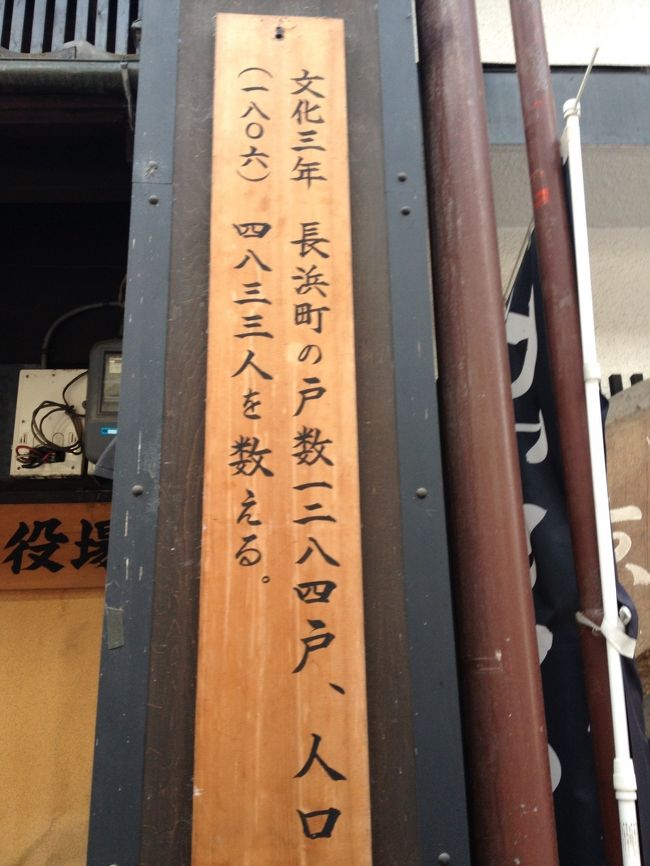 文化三年　長浜町の戸数一二八四戸、人口
（一八〇六）　四八三三人を数える。
役場